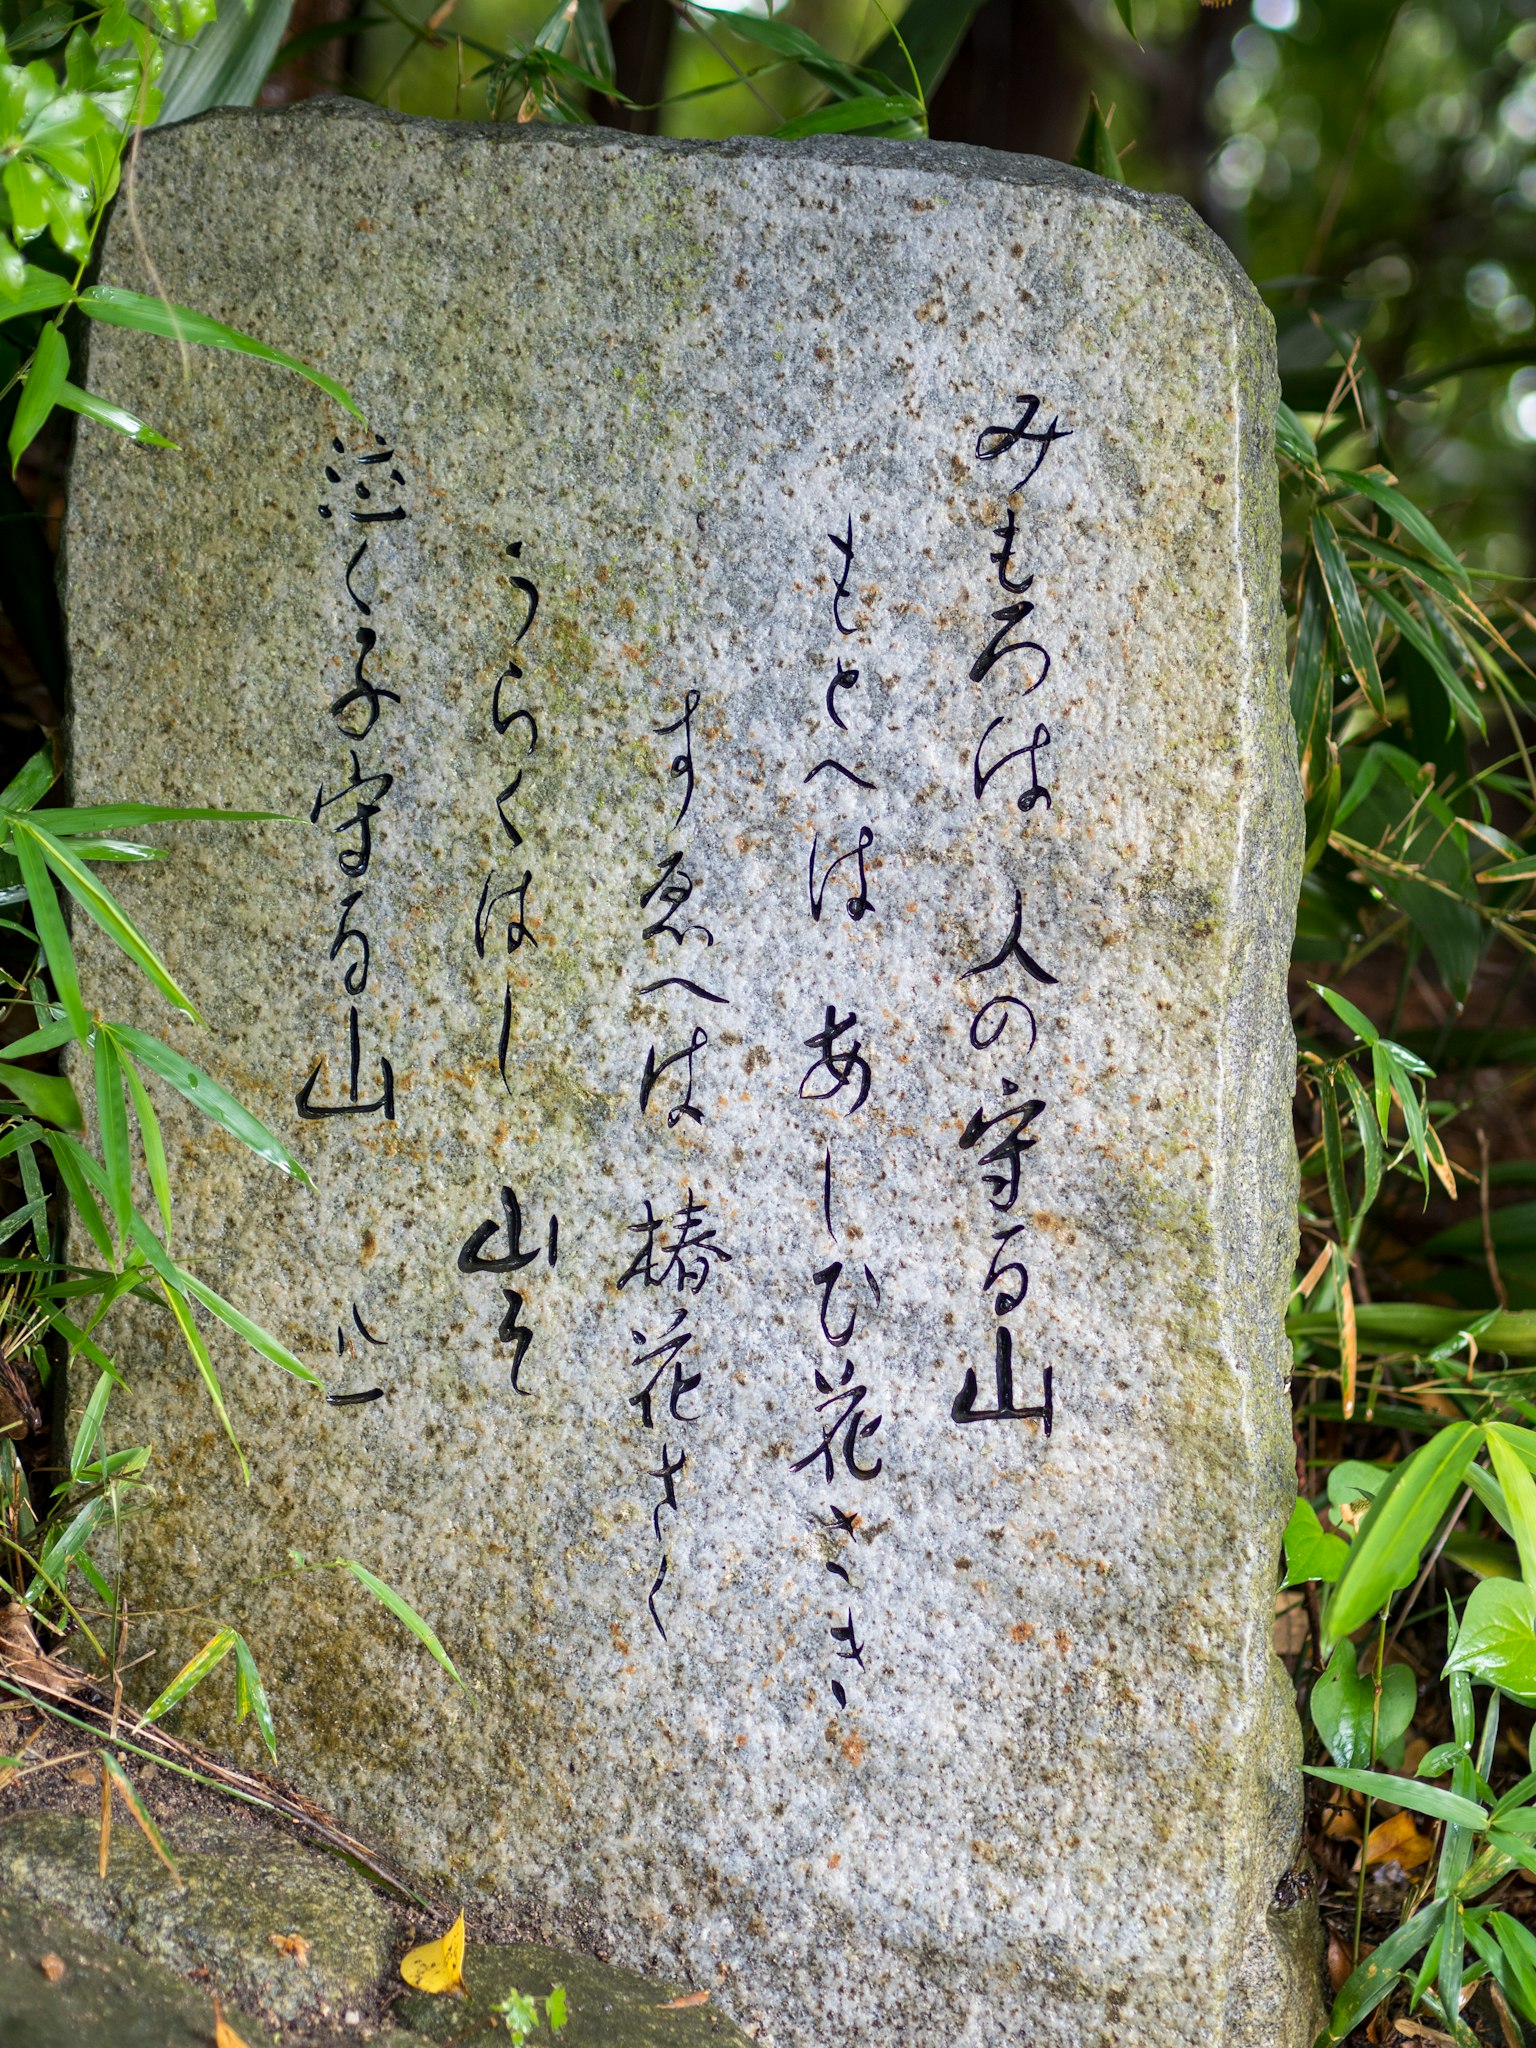 みもろは 人の守る山
もとへは あしひ花さき
すゑへは 椿花さく
うらくはし 山そ
泣く子守る山 八一